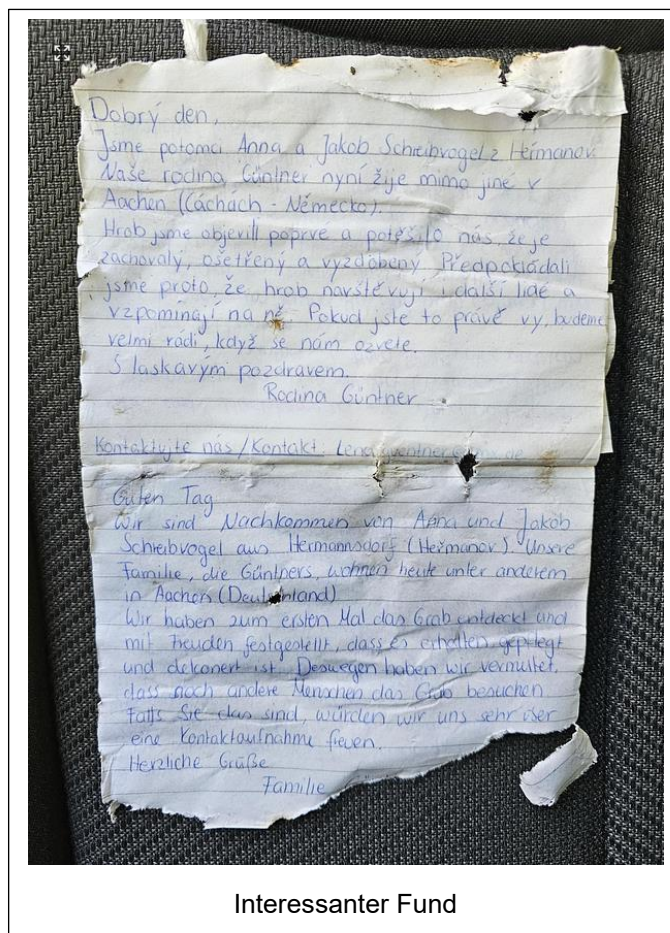 Dobrý den,
Jsme potomci Anna a Jakob Schreibvogel z Heřmanov.
Naše rodina Güntner nyní žije mimo jiné v
Aachen (Cáchách - Německo).
Hrob jsme objevili poprve a potěšilo nás, že je
zachovalý, ošetřený a vyzdobený. Předpokládali
jsme proto, že hrob navštěvují i další lidé a
vzpomínají na ně. Pokud jste to právě vy, budeme
velmi rádi, když se nám ozvete.
S laskavým pozdravem.
Rodina Güntner
Kontaktujte nás / Kontakt:
Guten Tag
Wir sind Nachkommen von Anna und Jakob
Schreibvogel aus Hermannsdorf (Heřmanov). Unsere
Familie, die Güntners, wohnen heute unter anderem
in Aachen (Deutschland)
Wir haben zum ersten Mal das Grab entdeckt und
mit Freuden festgestellt, dass es erhalten, gepflegt
und dekoriert ist. Deswegen haben wir vermutet,
dass noch andere Menschen das Grab besuchen
Falls Sie das sind, würden wir uns sehr über
eine Kontaktaufnahme freuen.
Herzliche Grüße
Familie
Interessanter Fund